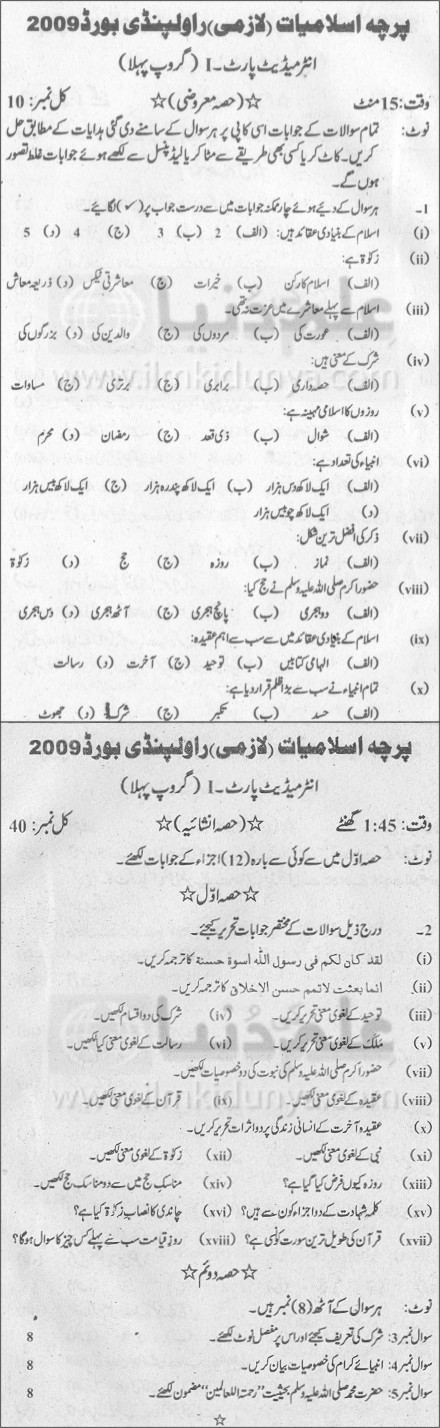 پرچہ اسلامیات (لازمی) راولپنڈی بورڈ 2009
انٹرمیڈیٹ پارٹ۔I (گروپ پہلا)
وقت: 15 منٹ ☆(حصہ معروضی)☆ کل نمبر: 10
نوٹ: تمام سوالات کے جوابات اسی کاپی پر ہر سوال کے سامنے دی گئی ہدایات کے مطابق حل
کریں۔ کاٹ کر یا کسی بھی طریقے سے مٹا کر یا لیڈ پنسل سے لکھے ہوئے جوابات غلط تصور
ہوں گے۔
1۔ ہر سوال کے دیئے ہوئے چار ممکنہ جوابات میں سے درست جواب پر (✓) لگائیے۔
(i) اسلام کے بنیادی عقائد ہیں: (الف) 2 (ب) 3 (ج) 4 (د) 5
(ii) زکوٰۃ ہے:
(الف) اسلام کا رکن (ب) خیرات (ج) معاشرتی ٹیکس (د) ذریعہ معاش
(iii) اسلام سے پہلے معاشرے میں عزت نہ تھی۔
(الف) عورت کی (ب) مردوں کی (ج) والدین کی (د) بزرگوں کی
(iv) شرک کے معنی ہیں:
(الف) حصہ داری (ب) برابری (ج) برتری (ج) مساوات
(v) روزوں کا اسلامی مہینہ ہے:
(الف) شوال (ب) ذی قعد (ج) رمضان (د) محرم
(vi) انبیاء کی تعداد ہے:
(الف) ایک لاکھ دس ہزار (ب) ایک لاکھ پندرہ ہزار (ج) ایک لاکھ بیس ہزار
(د) ایک لاکھ چوبیس ہزار
(vii) ذکر کی افضل ترین شکل:
(الف) نماز (ب) روزہ (ج) حج (د) زکوٰۃ
(viii) حضور اکرم صلی اللہ علیہ وسلم نے حج کیا:
(الف) دو ہجری (ب) پانچ ہجری (ج) آٹھ ہجری (د) دس ہجری
(ix) اسلام کے بنیادی عقائد میں سے سب سے اہم عقیدہ:
(الف) الہامی کتابیں (ب) توحید (ج) آخرت (د) رسالت
(x) تمام انبیاء نے سب سے بڑا ظلم قرار دیا ہے:
(الف) حسد (ب) تکبر (ج) شرک (د) جھوٹ
پرچہ اسلامیات (لازمی) راولپنڈی بورڈ 2009
انٹرمیڈیٹ پارٹ۔I (گروپ پہلا)
وقت: 1:45 گھنٹے ☆(حصہ انشائیہ)☆ کل نمبر: 40
نوٹ: حصہ اوّل میں سے کوئی سے بارہ (12) اجزاء کے جوابات لکھئے۔
☆حصہ اوّل☆
2۔ درج ذیل سوالات کے مختصر جوابات تحریر کیجئے۔
(i) لقد کان لکم فی رسول اللہ اسوۃ حسنۃ کا ترجمہ کریں۔
(ii) انما بعثت لاتمم حسن الاخلاق کا ترجمہ کریں۔
(iii) توحید کے لغوی معنی تحریر کریں۔ (iv) شرک کی دو اقسام لکھیں۔
(v) مَلَک کے لغوی معنی تحریر کریں۔ (vi) رسالت کے لغوی معنی کیا لکھیں۔
(vii) حضور اکرم صلی اللہ علیہ وسلم کی نبوت کی دو خصوصیات لکھیں۔
(viii) عقیدہ کے لغوی معنی لکھیں۔ (ix) قرآن کے لغوی معنی لکھیں۔
(x) عقیدہ آخرت کے انسانی زندگی پر دو اثرات تحریر کریں۔
(xi) نبی کے لغوی معنی لکھیں۔ (xii) زکوٰۃ کے لغوی معنی لکھیں۔
(xiii) روزہ کیوں فرض کیا گیا ہے؟ (xiv) مناسکِ حج میں سے دو مناسک حج لکھیں۔
(xv) کلمہ شہادت کے دو اجزاء کون سے ہیں؟ (xvi) چاندی کا نصاب زکوٰۃ کیا ہے؟
(xvii) قرآن کی طویل ترین سورت کونسی ہے؟ (xviii) روزِ قیامت سب سے پہلے کس چیز کا سوال ہوگا؟
☆حصہ دوئم☆
نوٹ: ہر سوال کے آٹھ (8) نمبر ہیں۔
سوال نمبر 3: شرک کی تعریف کیجئے اور اس پر مفصل نوٹ لکھئے۔ 8
سوال نمبر 4: انبیائے کرام کی خصوصیات بیان کریں۔ 8
سوال نمبر 5: حضرت محمد صلی اللہ علیہ وسلم بحیثیت "رحمتہ اللعالمین" مضمون لکھئے۔ 8
علم دنیا
www.ilmkidunya.com
علم دُنیا
www.ilmkidunya.com